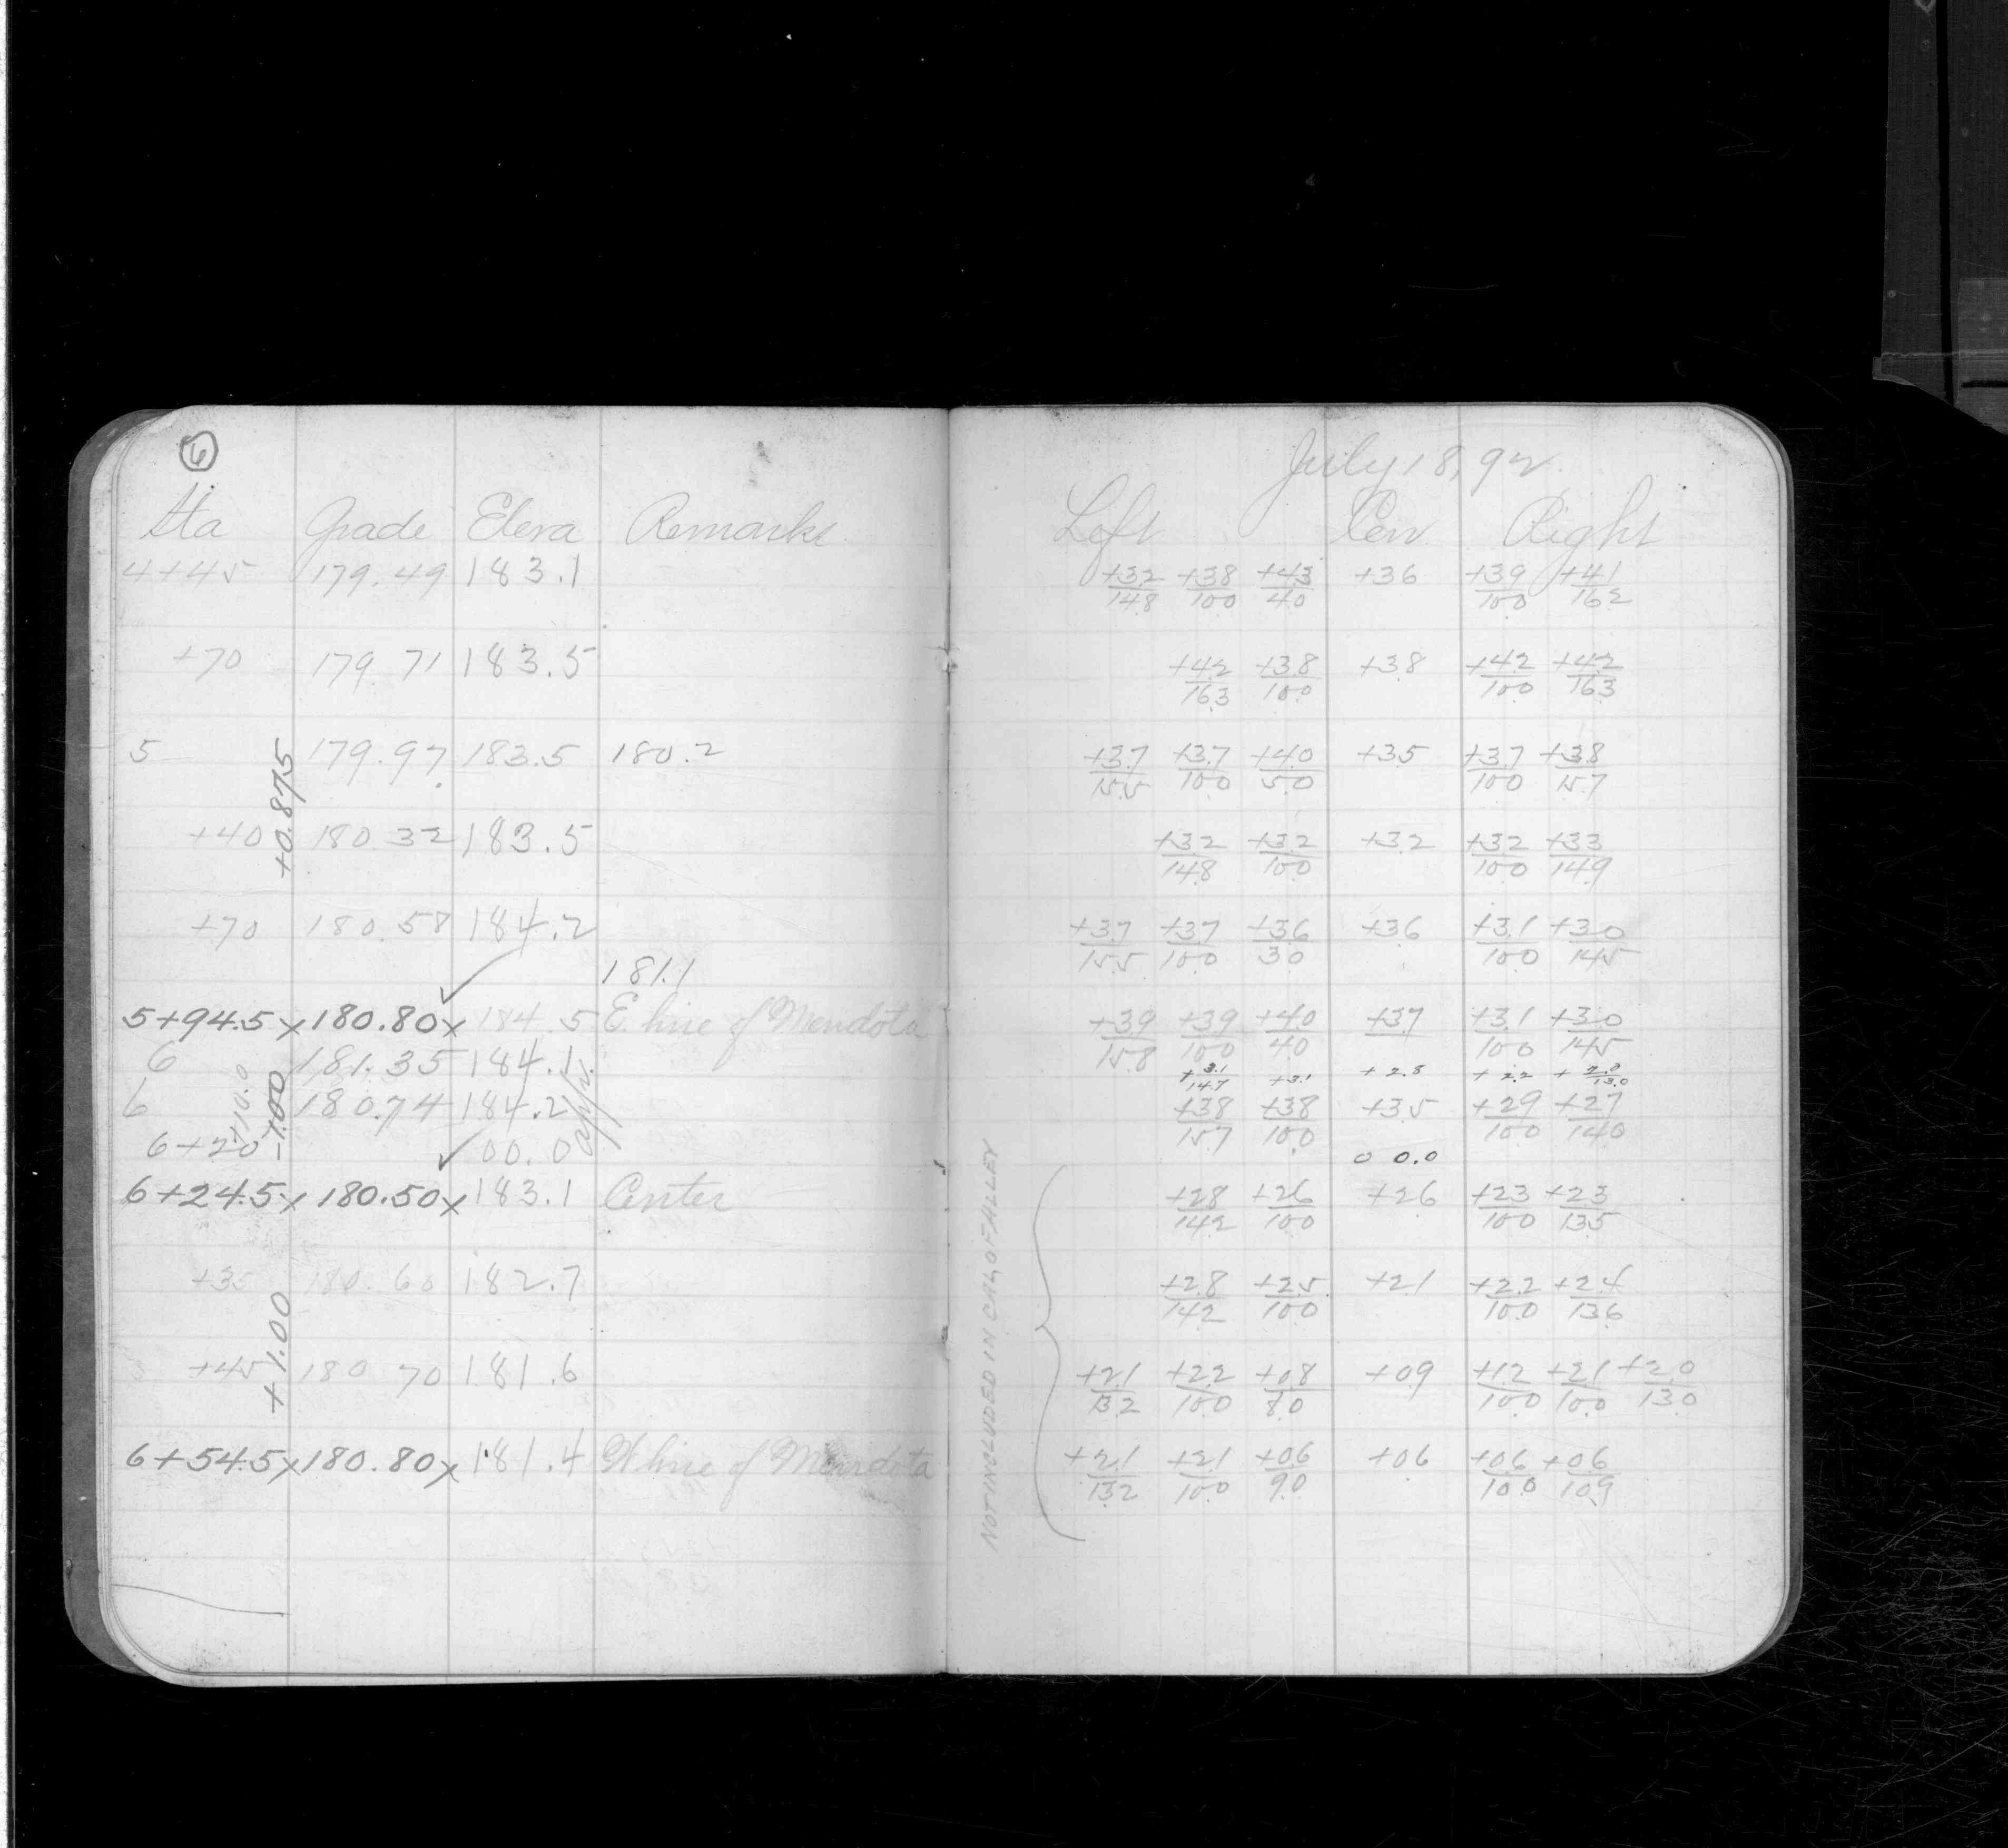 6
Sta Grade Eleva Remarks
4+45 179.49 183.1
+70 179.71 183.5
5 179.97 183.5 180.2
+0.875
+40 180.32 183.5
+70 180.58 184.2
181.1
5+94.5 x 180.80 x 184.5 E line of Mendota
6 181.35 184.1
6 180.74 184.2 app.
+10.0
-1.00
6+20 00.0
6+24.5 x 180.50 x 183.1 Center
+35 180.60 182.7
+1.00
+45 180 70 181.6
6+54.5 x 180.80 x 181.4 W line of Mendota
July 18, 92
Left Cen Right
+3.2/14.8 +3.8/10.0 +4.3/4.0 +3.6 +3.9/10.0 +4.1/16.2
+4.2/16.3 +3.8/10.0 +3.8 +4.2/10.0 +4.2/16.3
+3.7/15.5 +3.7/10.0 +4.0/5.0 +3.5 +3.7/10.0 +3.8/15.7
+3.2/14.8 +3.2/10.0 +3.2 +3.2/10.0 +3.3/14.9
+3.7/15.5 +3.7/10.0 +3.6/3.0 +3.6 +3.1/10.0 +3.0/14.5
+3.9/15.8 +3.9/10.0 +4.0/4.0 +3.7 +3.1/10.0 +3.0/14.5
+3.1/14.7 +3.1 +2.8 +2.2 +2.0/13.0
+3.8/15.7 +3.8/10.0 +3.5 +2.9/10.0 +2.7/14.0
0 0.0
+2.8/14.2 +2.6/10.0 +2.6 +2.3/10.0 +2.3/13.5
+2.8/14.2 +2.5/10.0 +2.1 +2.2/10.0 +2.4/13.6
+2.1/13.2 +2.2/10.0 +0.8/8.0 +0.9 +1.2/10.0 +2.1/10.0 +2.0/13.0
+2.1/13.2 +2.1/10.0 +0.6/9.0 +0.6 +0.6/10.0 +0.6/10.9
NOT INCLUDED IN CAL. OF ALLEY